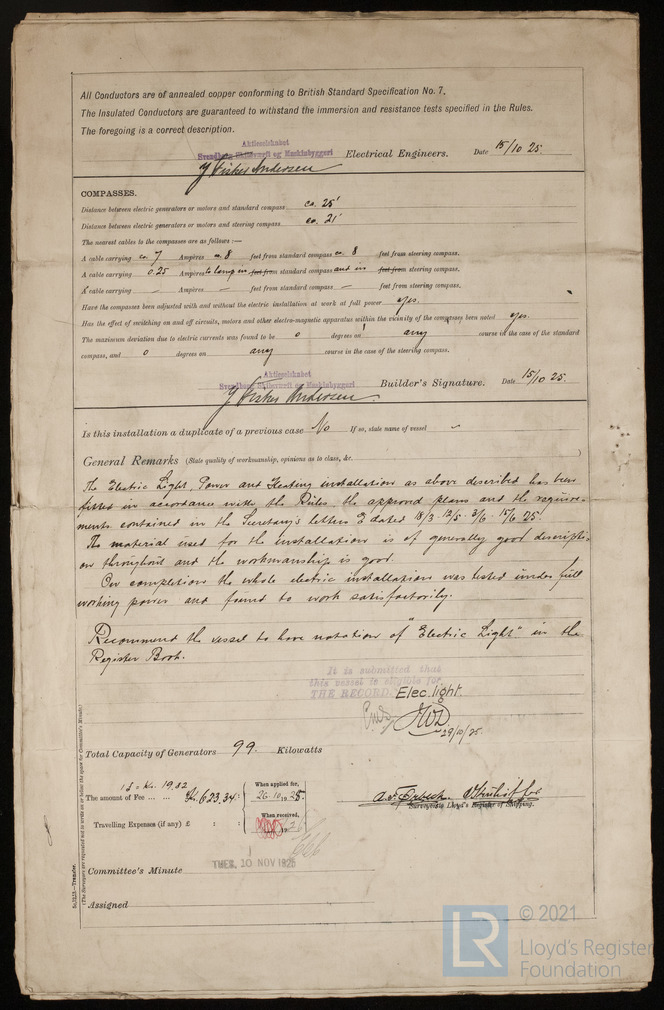 All Conductors are of annealed copper conforming to British Standard Specification No. 7.
The Insulated Conductors are guaranteed to withstand the immersion and resistance tests specified in the Rules.
The foregoing is a correct description.
Aktieselskabet
og Maskinbyggeri Electrical Engineers. Date 15/10 25.
COMPASSES.
Distance between electric generators or motors and standard compass ca. 25'
Distance between electric generators or motors and steering compass ca. 21'
The nearest cables to the compasses are as follows:—
A cable carrying ca. 7 Ampères ca. 8 feet from standard compass ca. 8 feet from steering compass.
A cable carrying 0.25 Ampères to lamp in feet from standard compass and in feet from steering compass.
A cable carrying — Ampères — feet from standard compass — feet from steering compass.
Have the compasses been adjusted with and without the electric installation at work at full power yes.
Has the effect of switching on and off circuits, motors and other electro-magnetic apparatus within the vicinity of the compasses been noted yes.
The maximum deviation due to electric currents was found to be 0 degrees on any course in the case of the standard
compass, and 0 degrees on any course in the case of the steering compass.
Aktieselskabet
og Maskinbyggeri Builder's Signature. Date 15/10 25.
Is this installation a duplicate of a previous case No If so, state name of vessel —
General Remarks (State quality of workmanship, opinions as to class, &c.
The Electric Light, Power and Heating installation as above described has been
fitted in accordance with the Rules, the approved plans and the require-
ments contained in the Secretary's letters E dated 18/3 - 12/5 - 3/6 - 15/6 25.
The material used for the installation is of generally good descripti-
on throughout and the workmanship is good.
On completion the whole electric installation was tested under full
working power and found to work satisfactorily.
Recommend the vessel to have notation of "Electric Light" in the
Register Book.
It is submitted that
this vessel is eligible for
THE RECORD. Elec. light.
29/10/25.
Total Capacity of Generators 99. Kilowatts
1£ = Kr. 19,32
The amount of Fee ... ... Kr. 623.34: When applied for, 26.10.1925.
Travelling Expenses (if any) £ : : When received,
Surveyor to Lloyd's Register of Shipping.
TUES. 10 NOV 1925
Committee's Minute
Assigned
(The Surveyors are requested not to write on or below the space for Committee's Minute.)
© 2021
LR
Lloyd's Register
Foundation